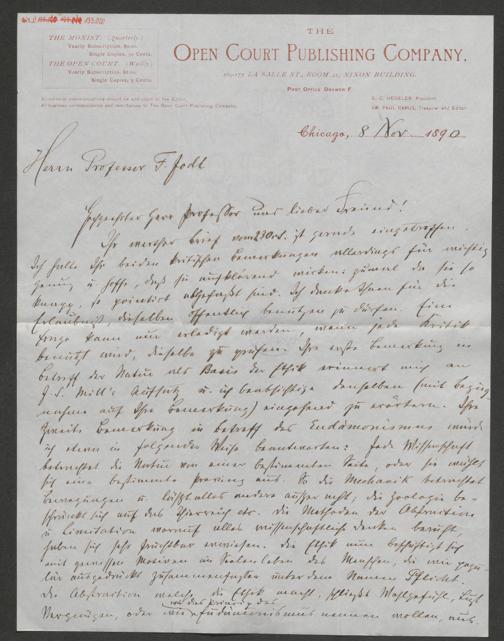 THE MONIST. (Quarterly.)
Yearly Subscription, $2.00.
Single Copies, 50 Cents.
THE OPEN COURT. (Weekly.)
Yearly Subscription, $2.00.
Single Copies, 5 Cents.
THE
OPEN COURT PUBLISHING COMPANY.
169-175 LA SALLE ST., ROOM NIXON BUILDING.
POST OFFICE DRAWER F.
E. C. HEGELER, President.
DR. PAUL CARUS, Treasurer and Editor.
Editorial communications should be addressed to the Editor.
All business correspondence and remittances to The Open Court Publishing Company.
Chicago, 8 Nov. 1890
Herrn Professor F. Jodl
Hochgeehrter Herr Professor und lieber Freund!
Ihr werther Brief vom ist gerade eingetroffen.
Ich halte Ihre beiden kritischen Bemerkungen allerdings für wichtig
genug u. hoffe, daß sie aufklärend wirken; zumal da sie so
knapp, so pointirt abgefaßt sind. Ich danke Ihnen für die
Erlaubniß, dieselben öffentlich benutzen zu dürfen. Eine
Frage kann nur erledigt werden, wenn jede Kritik
benutzt wird, dieselbe zu prüfen. Ihre erste Bemerkung in
betreff der Natur als Basis der Ethik erinnert mich an
J. S. Mill's Aufsatz u. ich beabsichtige denselben (mit bezug
nahme auf Ihre Bemerkung) eingehend zu erörtern. Ihre
zweite Bemerkung in betreff des Eudämonismus würde
ich etwa in folgender Weise beantworten: Jede Wissenschaft
betrachtet die Natur von einer bestimmten Seite, oder sie wählt
sich eine bestimmte Provinz aus. So die Mechanik betrachtet
Bewegungen u. läßt alles andere außer acht; die Zoologie be-
schränkt sich auf das Thierreich etc. Die Methoden der Abstraction
u. Limitation worauf alles wissenschaftliche Denken beruht,
haben sich sehr fruchtbar erwiesen. Die Ethik nun beschäftigt sich
mit gewissen Motiven im Seelenleben des Menschen, die wir popu-
lär ausgedrückt zusammenfassen unter dem Namen Pflicht.
Die Abstraction welche die Ethik macht, schließt Wohlgefühl,
Vergnügen, oder wie wir das Princip des Eudämonismus nennen wollen, aus.